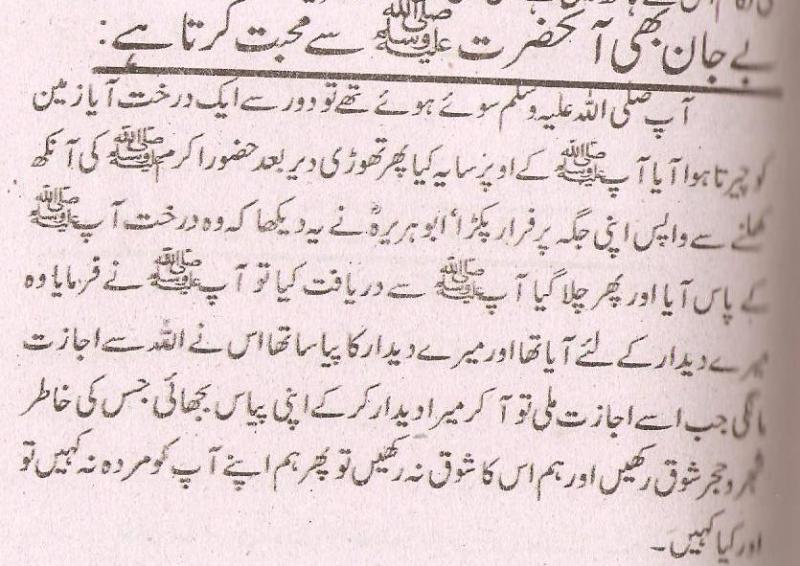 بے جان بھی آنحضرت ﷺ سے محبت کرتا ہے:
آپ صلی اللہ علیہ وسلم سوئے ہوئے تھے تو دور سے ایک درخت آیا زمین
کو چیرتا ہوا آیا آپ ﷺ کے اوپر سایہ کیا پھر تھوڑی دیر بعد حضور اکرم ﷺ کی آنکھ
کھلنے سے واپس اپنی جگہ پر قرار پکڑا، ابو ہریرہؓ نے یہ دیکھا کہ وہ درخت آپ ﷺ
کے پاس آیا اور پھر چلا گیا آپ ﷺ سے دریافت کیا تو آپ ﷺ نے فرمایا وہ
میرے دیدار کے لئے آیا تھا اور میرے دیدار کا پیاسا تھا اس نے اللہ سے اجازت
مانگی جب اسے اجازت ملی تو آ کر میرا دیدار کر کے اپنی پیاس بجھائی جس کی خاطر
شجر و حجر شوق رکھیں اور ہم اس کا شوق نہ رکھیں تو پھر ہم اپنے آپ کو مردہ نہ کہیں تو
اور کیا کہیں۔